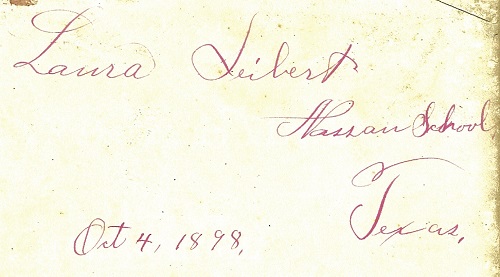 Laura Seibert
Nassau School
Texas.
Oct 4, 1898.